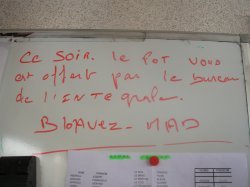 Ce SOIR. le POT vous
est offert par le bureau
de l'INTEgrale.
BloAvez-MAD